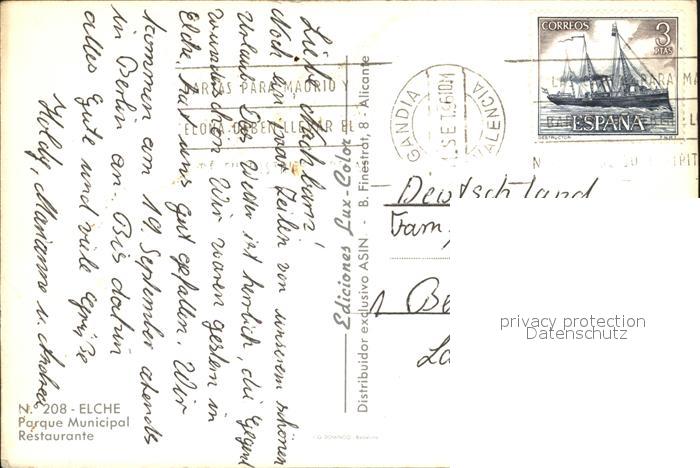 Liebe Nachbarn!
Noch ein paar Zeilen von unserem schönen
Urlaub. Das Wetter ist herrlich, die Gegend
wunderschön. Wir waren gestern in
Elche, hat uns gut gefallen. Wir
kommen am 19. September abends
in Berlin an. Bis dahin
alles Gute und viele Grüße
Holdy, Marianne u. Andrea
N.º 208 - ELCHE
Parque Municipal
Restaurante
Ediciones Lux-Color
Distribuidor exclusivo ASIN. - B. Finestrat, 8 - Alicante
CORREOS
3
PTAS
ESPAÑA
GANDIA
VALENCIA
CARTAS PARA MADRID Y
LLEVAR EL
Deutschland
Fam.
Be
privacy protection
Datenschutz